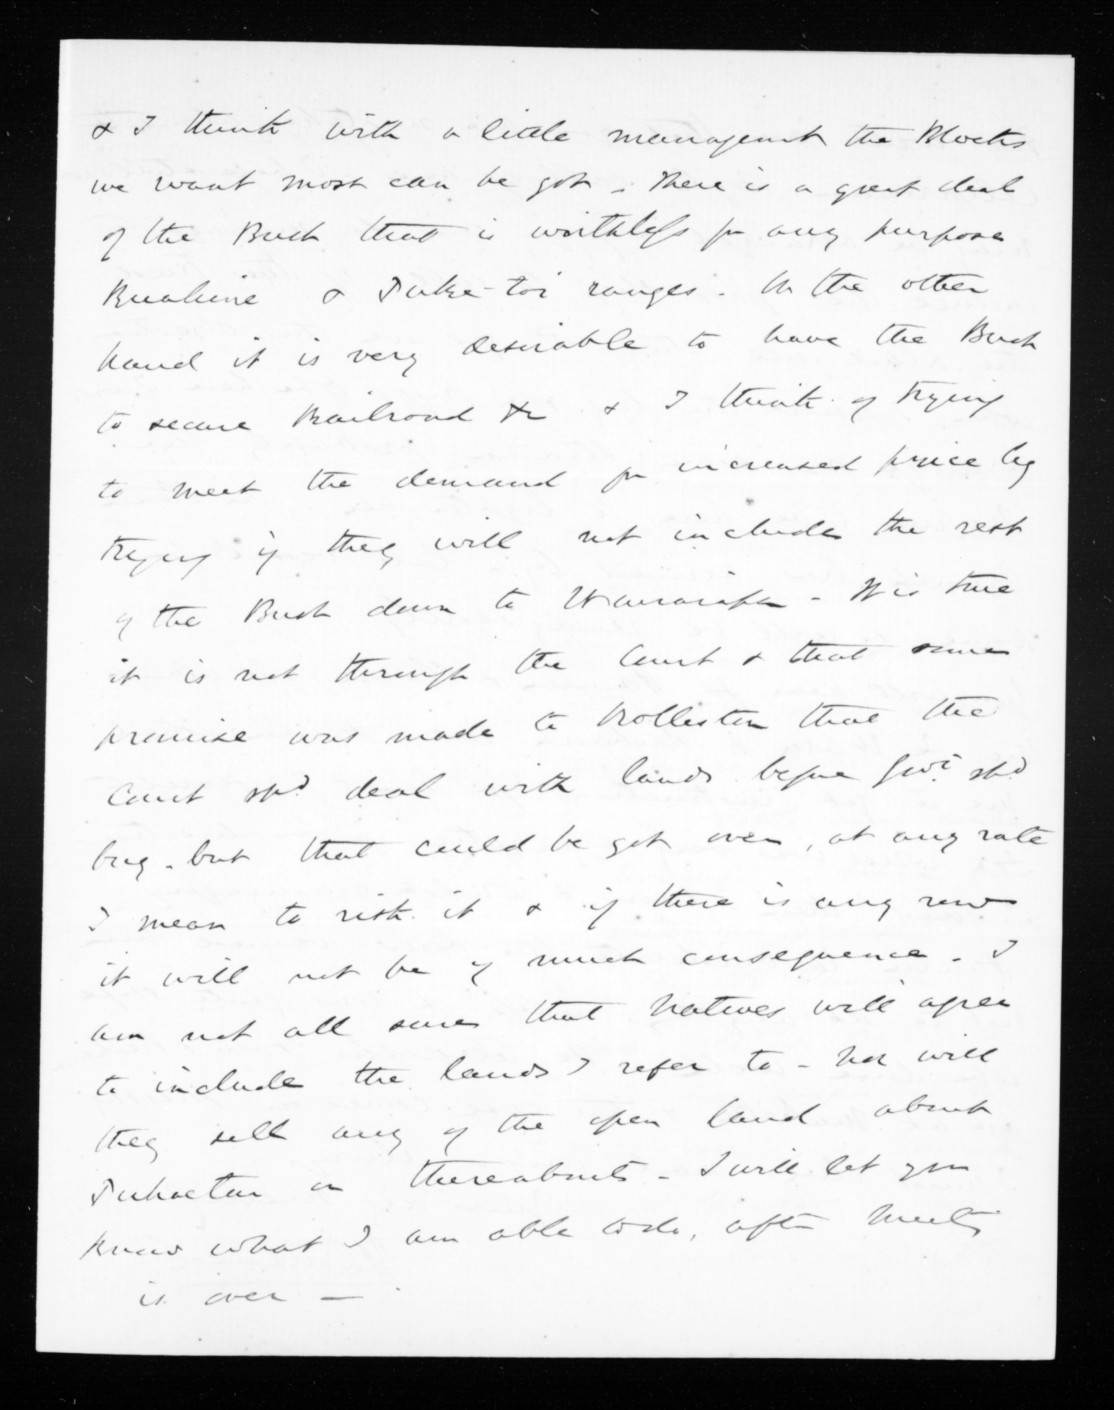 & I think with a little managemt the Blocks
we want most can be got - There is a great deal
of the Bush that is worthless for any purpose
Ruahine & Puke-toi ranges - On the other
hand it is very desirable to have the Bush
to secure Railroad &c & I think of trying
to meet the demand for increased price by
trying if they will not include the rest
of the Bush down to Wairarapa - It is true
it is not through the Court & that some
promise was made to Rolleston that the
Court shd deal with lands before Govt shd
buy - but that could be got over, at any rate
I mean to risk it & if there is any row
it will not be of much consequence - I
am not all sure that Natives will agree
to include the lands I refer to - Nor will
they sell any of the open land about
or thereabouts - I will let you
know what I am able to do, after meetg
is over -